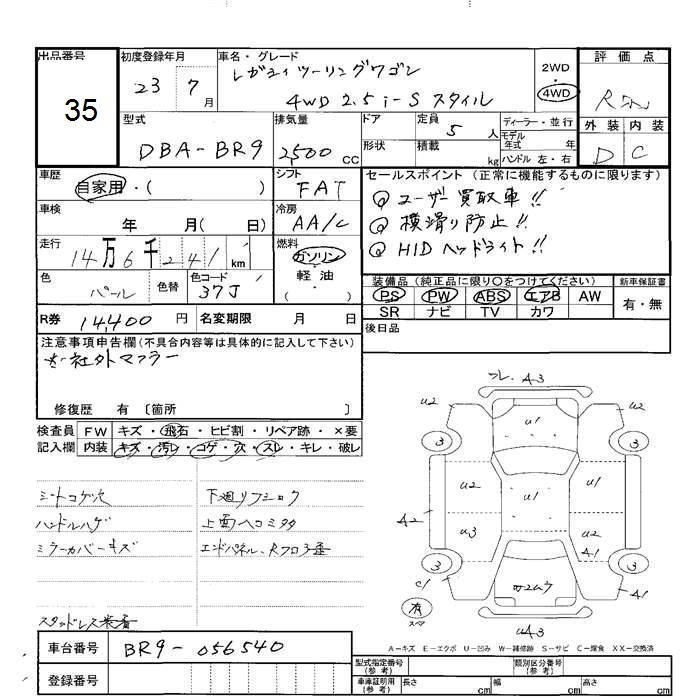 出品番号
35
初度登録年月
23 7 月
車名・グレード
レガシィツーリングワゴン
4WD 2.5 i-S スタイル
2WD
4WD
評価点
外装 内装
D C
型式
DBA-BR9
排気量
2500 cc
ドア
形状
定員
5 人
積載
kg
ディーラー・並行
モデル
年式 年
ハンドル 左・右
車歴
自家用・( )
シフト
FAT
車検
年 月( 日)
冷房
AA/C
走行
14万6千241 km
燃料
ガソリン
軽油
( )
色
パール
色替
色コード
37J
R券 14,400 円 名変期限 月 日
セールスポイント (正常に機能するものに限ります)
ユーザー買取車!!
横滑り防止!!
HIDヘッドライト!!
装備品 (純正品に限り○をつけてください)
PS PW ABS エアB AW
SR ナビ TV カワ
新車保証書
有・無
後日品
注意事項申告欄(不具合内容等は具体的に記入して下さい)
社外マフラー
修復歴 有 〔箇所 〕
検査員
記入欄
FW キズ・飛石・ヒビ割・リペア跡・×要
内装 キズ・汚レ・コゲ・穴・スレ・キレ・破レ
シートコゲ穴
ハンドルハゲ
ミラーカバーキズ
スタッドレス装着
下廻リフショク
上面ヘコミ多々
車台番号 BR9-056540
登録番号
フレ. A3
U2 U2
U1
3 3
U2 U1
A2 U1
U3 U2
A1
3 3
C1 A1
有
スペア
UA3
A-キズ E-エクボ U-凹み W-補修跡 S-サビ C-腐食 XX-交換済
型式指定番号
(参考)
類別区分番号
(参考)
車庫証明用
(参考)
長さ cm 幅 cm 高さ cm